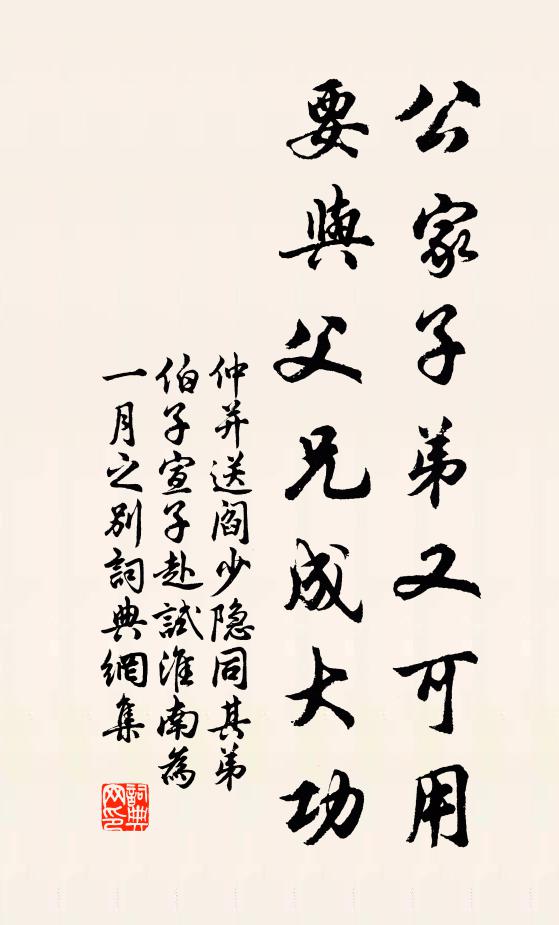 公家子弟又可用
要與父兄成大功
仲并送阎少隐同其弟
伯子宣子赴試淮南為
一月之别詞典網集
詞典网印